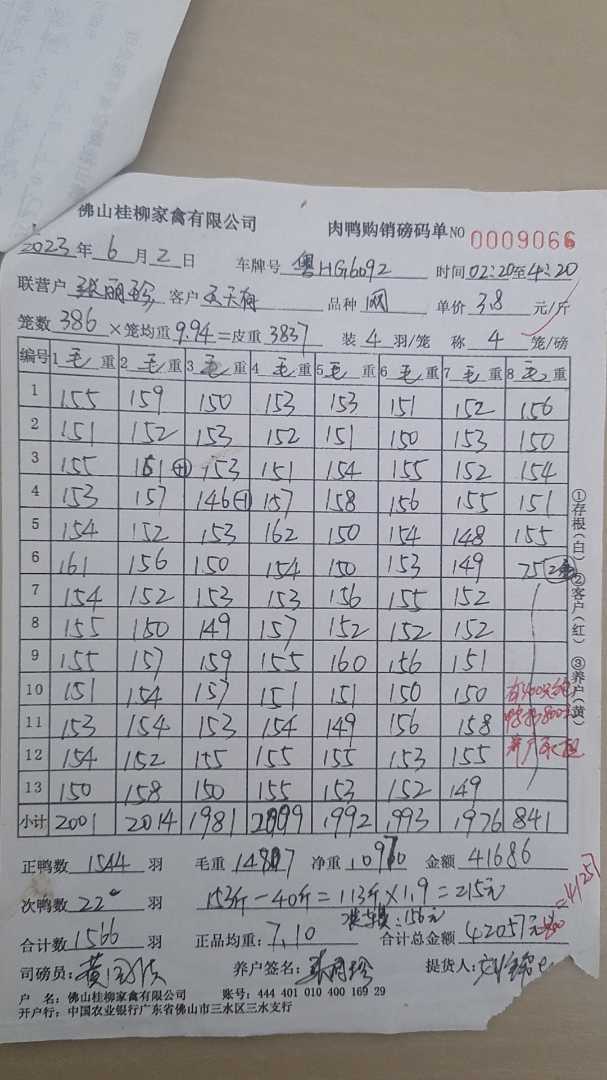 佛山桂柳家禽有限公司 肉鸭购销磅码单 NO 0009066
2023年 6 月 2 日 车牌号 粤HG6092 时间 02:20至4:20
联营户 张丽珍 客户 品种 网 单价 3.8 元/斤
笼数 386 ×笼均重 9.94 =皮重 3837 装 4 羽/笼 称 4 笼/磅
编号 1 毛 重 2 毛 重 3 毛 重 4 毛 重 5 毛 重 6 毛 重 7 毛 重 8 毛 重
1 155 159 150 153 153 151 152 156
2 151 152 153 152 151 150 153 150
3 155 161 (+) 153 151 154 155 152 154
4 153 157 146 (-) 157 158 156 155 151
5 154 152 153 162 150 154 148 155
6 161 156 150 154 150 153 149 75
7 154 152 153 153 156 155 152
8 155 150 149 157 152 152 152
9 155 157 159 155 160 156 151
10 151 154 157 151 151 150 150
11 153 154 153 154 149 156 158
12 154 152 155 155 155 153 155
13 150 158 150 155 153 152 149
小计 2001 2014 1981 1992 1993 1976 841
①存根(白) ②客户(红) ③养户(黄)
正鸭数 1544 羽 毛重 净重 金额 41686
次鸭数 22 羽 153斤-40斤=113斤×1.9=215元
156元
合计数 1566 羽 正品均重: 7.10 合计总金额 42057元
司磅员: 养户签名: 张丽珍 提货人:
户 名: 佛山桂柳家禽有限公司 账号: 444 401 010 400 169 29
开户行: 中国农业银行广东省佛山市三水区三水支行